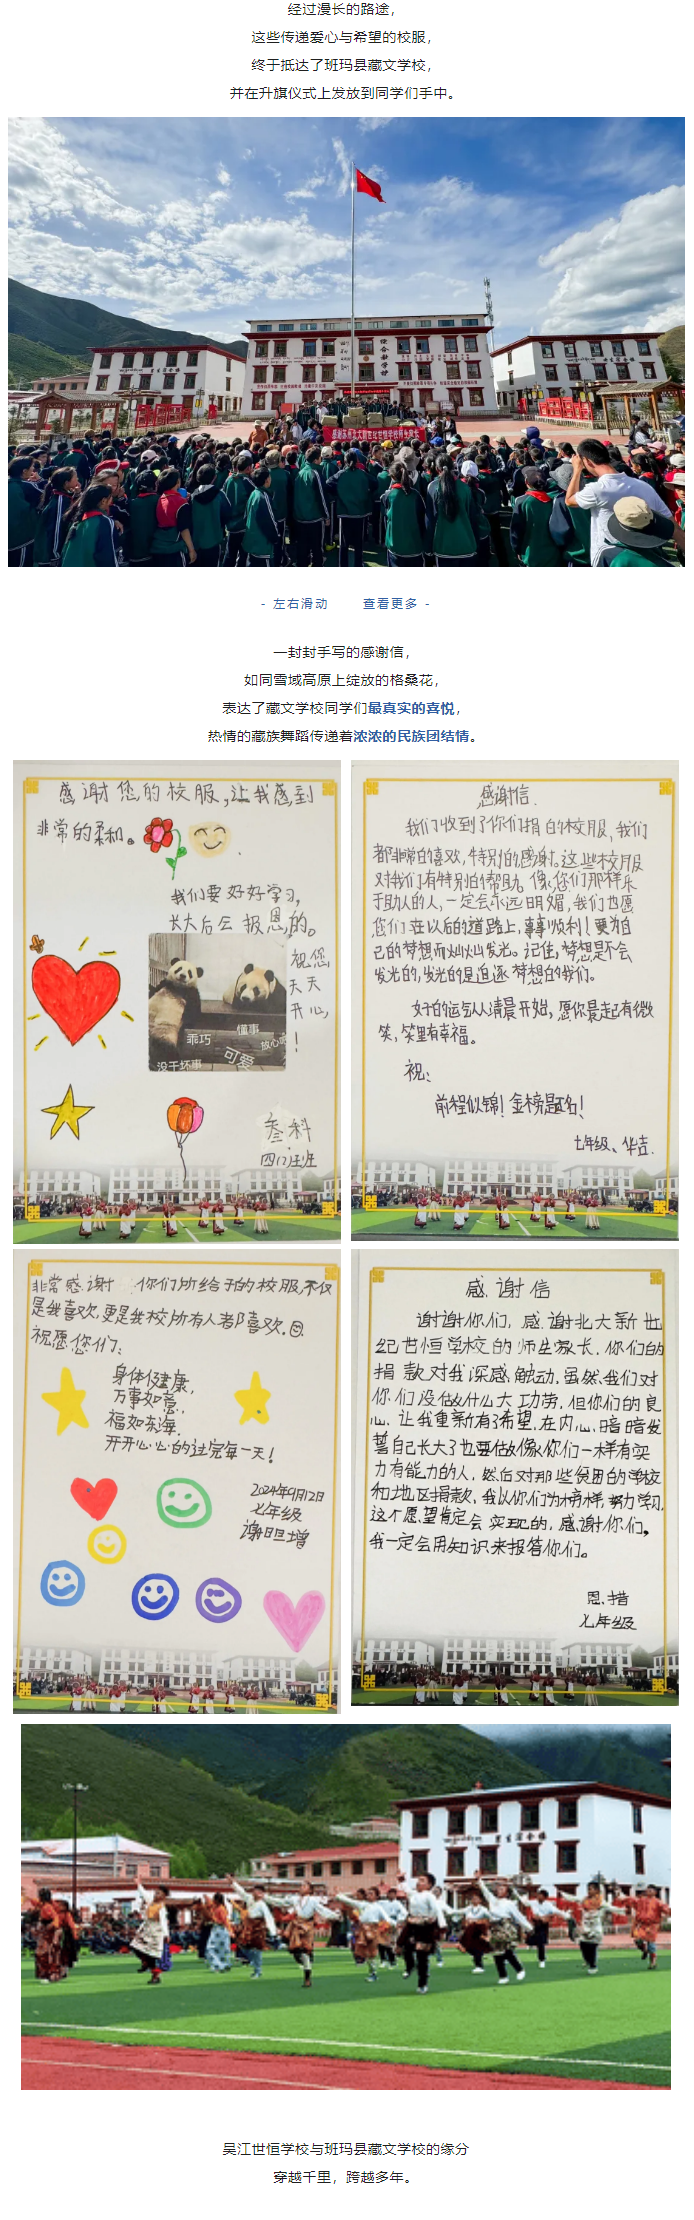 经过漫长的路途，
这些传递爱心与希望的校服，
终于抵达了班玛县藏文学校，
并在升旗仪式上发放到同学们手中。
综合教学楼
- 左右滑动 查看更多 -
一封封手写的感谢信，
如同雪域高原上绽放的格桑花，
表达了藏文学校同学们最真实的喜悦，
热情的藏族舞蹈传递着浓浓的民族团结情。
感谢您的校服，让我感到
非常的柔和。
我们要好好学习，
长大后会报恩的。
祝您
天天
开心，
！
乖巧
懂事
放心吧
没干坏事
可爱
叁科
四(2)班
感谢信
我们收到了你们捐的校服，我们
都非常的喜欢，特别的感谢。这些校服
对我们有特别的帮助，像您们那样乐
于助人的人，一定会永远明媚，我们也愿
您们在以后的道路上，事事顺利！更为自
己的梦想而灿灿发光。记住，梦想是不会
发光的，发光的是追逐梦想的我们。
好的运气从清晨开始，愿你晨起有微
笑，笑里有幸福。
祝：
前程似锦！金榜题名！
七年级、华吉.
非常感谢 你们所给予的校服，不仅
是我喜欢，更是我校所有人都喜欢。
祝愿您们：
身体健康，
万事如意，
福如东海，
开开心心的过完每一天！
2024年9月12日
七年级
谢日旦增
感谢信
谢谢你们，感谢北大新世
纪世恒学校的师生家长，你们的
捐款对我深感触动，虽然我们对
你们没做什么大功劳，但你们的良
心，让我重新有了希望，在内心，暗暗发
誓自己长大了也要做像你们一样有实
力有能力的人，然后对那些贫困的学校
和地区捐款，我以你们为榜样，努力学习，
这个愿望肯定会实现的，感谢你们，
我一定会用知识来报答你们。
恩措
七年级
吴江世恒学校与班玛县藏文学校的缘分
穿越千里，跨越多年。